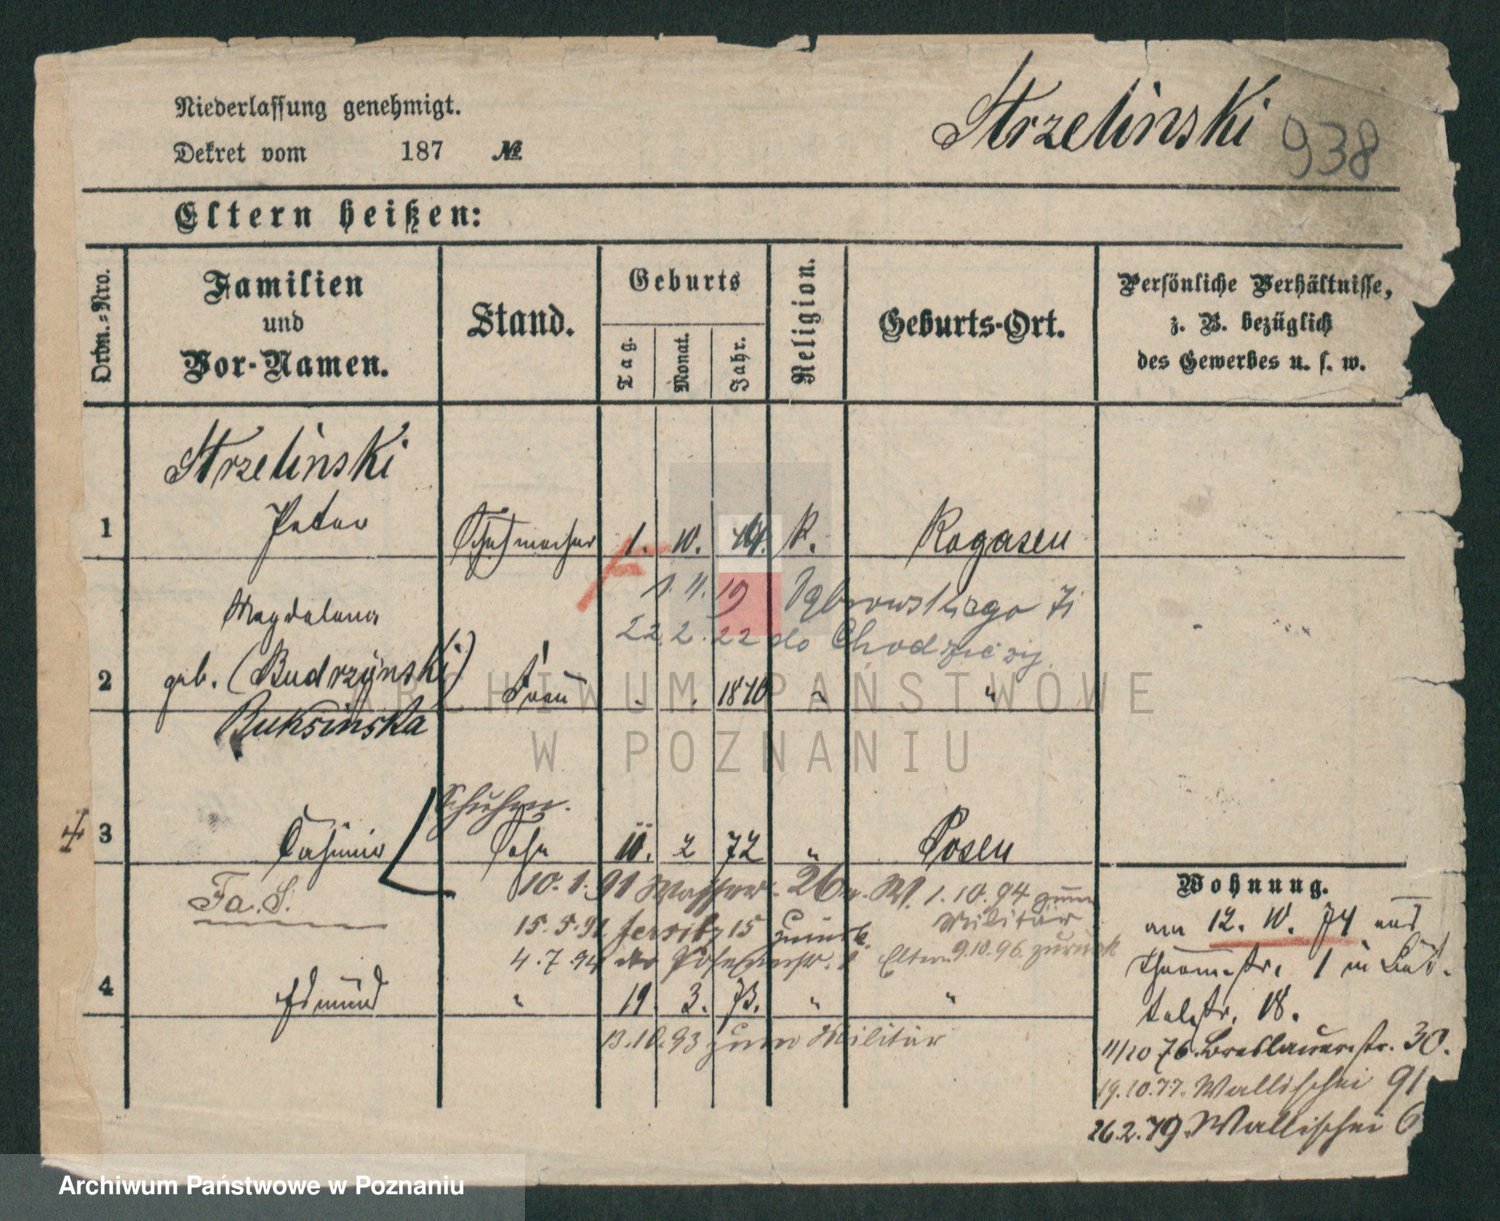 Niederlassung genehmigt.
Strzelinski 938
Dekret vom 187 №
Eltern heißen:
Ordn.-Nro.
Familien und Vor-Namen.
Stand.
Geburts
Tag.
Monat.
Jahr.
Religion.
Geburts-Ort.
Persönliche Verhältnisse,
z. B. bezüglich
des Gewerbes u. s. w.
Strzelinski
1 Peter Schuhmacher 1. 10. K. Rogasen
1. 11. 19 Dąbrowskiego 71
22.2.22 do Chodzieży
Magdalena
2 geb. (Budrzynski) Frau . . 1840 " "
Buksinska
ARCHIWUM PAŃSTWOWE
W POZNANIU
3 Casimir Sohn 2 72 " Posen
10.1.91 Wasserstr. 26 1.10.94 zum
Militär
Fa. S.
15.5.91 Jersitz 15 zurück
4.7.94 Eltern 9.10.96 zurück
4 Edmund " 19. 3. 73. " "
13.10.93 zum Militär
Wohnung.
am 12. 10. 74 aus
Thurmstr. 1 in
18.
11/10 76. Breslauerstr. 30.
19.10.77. Wallischei 91
26.2.79. Wallischei 6
Archiwum Państwowe w Poznaniu